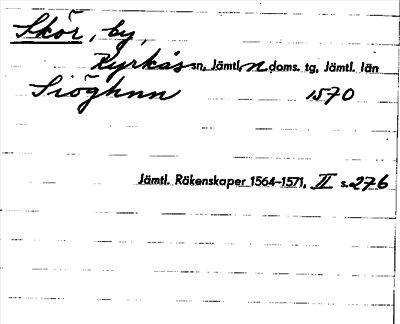 Skör, by,
Kyrkås sn, Jämtl. n doms. tg, Jämtl. län
Siöghnn 1570
Jämtl. Räkenskaper 1564–1571, II s. 276